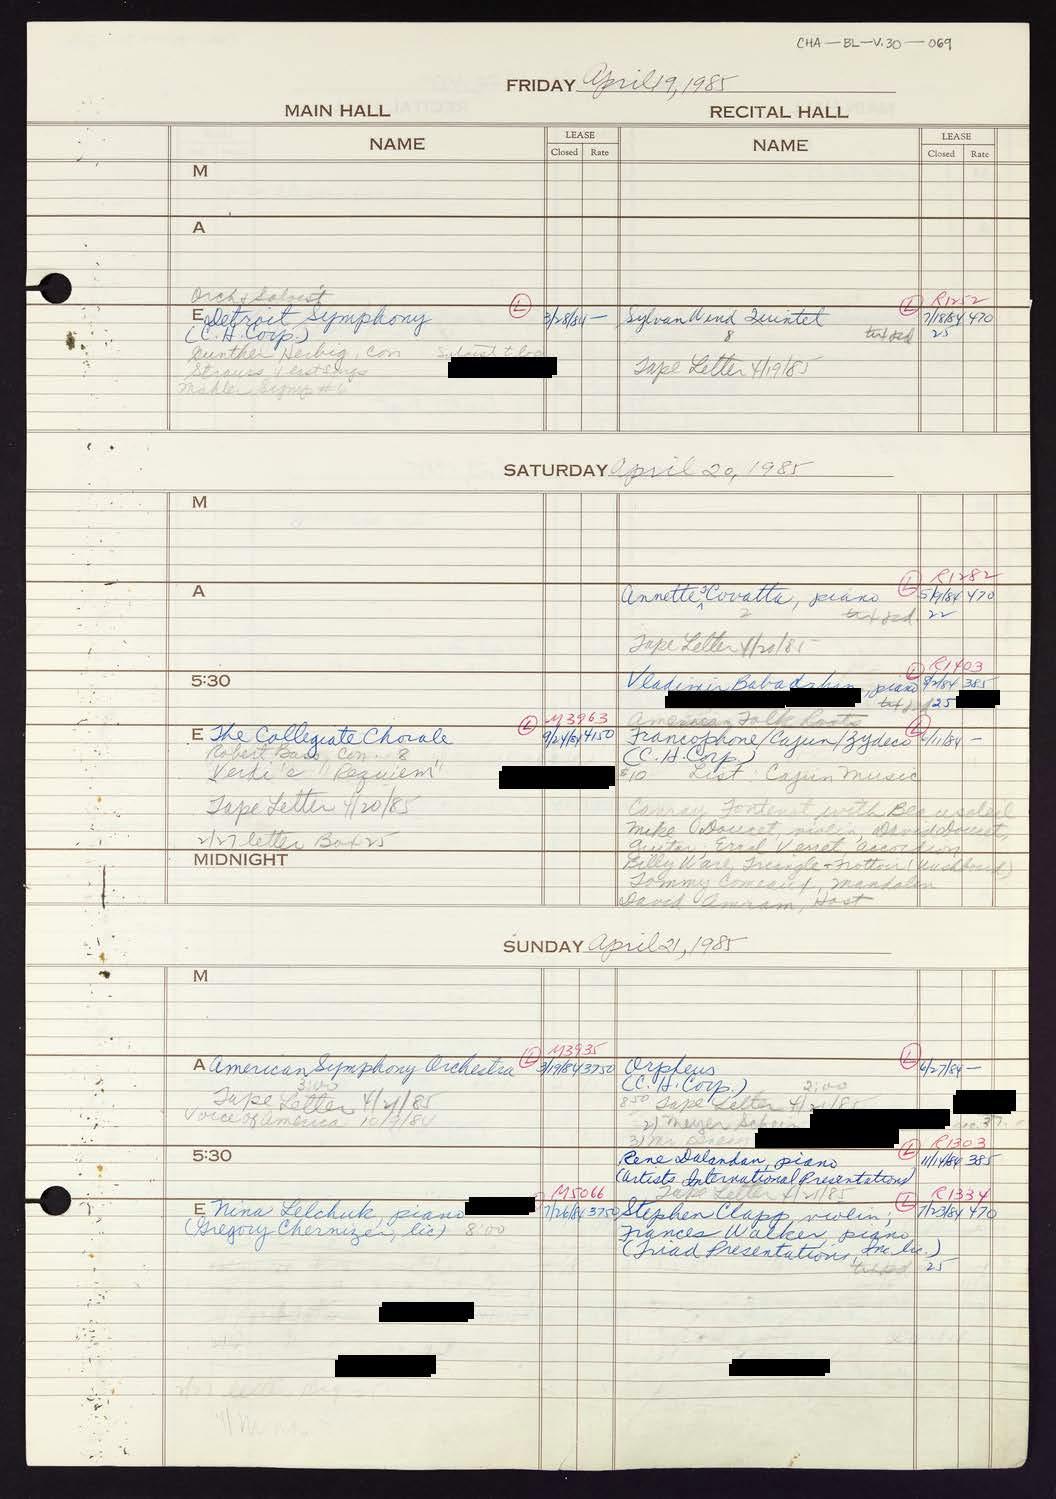 CHA-BL-V.30-069
FRIDAY April 19, 1985
MAIN HALL RECITAL HALL
NAME LEASE Closed Rate NAME LEASE Closed Rate
M
A
Orch & Soloist
E Detroit Symphony L 3/28/84 —
(C.H. Corp.)
Gunther Herbig, con
Strauss
Mahler Symp #6
L R1252
Sylvan Wind Quintet 7/18/84 470
8 25
Tape Letter 4/19/85
SATURDAY April 20, 1985
M
A
L R1282
Annette Covatta, piano 470
2 22
Tape Letter 4/20/85
5:30
L R1403
Vladimir Babadzhan, piano 385
25
M3963
E The Collegiate Chorale L 9/24/84 4150
Robert Bass, con. 8
Verdi's "Requiem"
Tape Letter 4/20/85
2/27 letter Box 25
MIDNIGHT
American Folk Roots
Francophone/Cajun/Zydeco L —
(C.H. Corp.)
$10 List: Cajun Music
Canray Fontenot with Beausoleil
Mike Doucet, violin, David Doucet,
guitar; Errol Verret, accordion
Billy Ware, Triangle + Frottoir (Washboard)
Tommy Comeaux, mandolin
David Amram, Host
SUNDAY April 21, 1985
M
L M3935
A American Symphony Orchestra 3/19/84 3750
3:00
Tape Letter 4/21/85
Voice of America
Orpheus L 6/27/84 —
(C.H. Corp.) 2:00
850 Tape Letter 4/21/85
2) Meyer
3) Mr.
5:30
L R1303
Rene Dalandan, piano 11/14/84 385
(Artists International Presentations)
Tape Letter 4/21/85
M5066
E Nina Lelchuk, piano 7/26/84 3750
(Gregory Chernizer, lic) 8:00
L R1334
Stephen Clapp, violin; 7/23/84 470
Frances Walker, piano
(Triad Presentations, Inc. lic.)
25